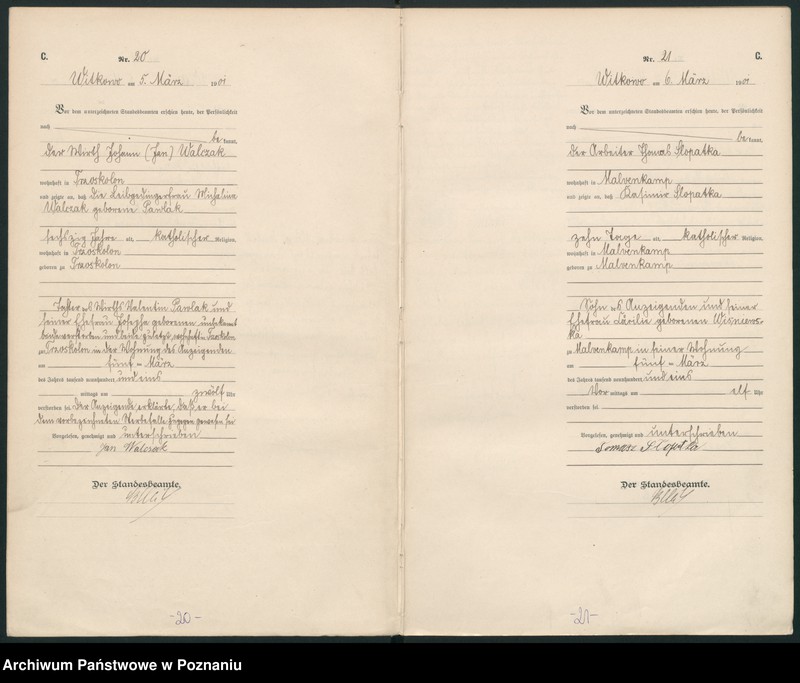 C.
Nr. 20
Witkowo am 5. März 1901
Vor dem unterzeichneten Standesbeamten erschien heute, der Persönlichkeit
nach
be kannt,
der Wirth Johann (Jan) Walczak
wohnhaft in Trzoskolon
und zeigte an, daß die Leibgedingerfrau Michalina
Walczak geborene Pawlak
sechszig Jahre alt, katholischer Religion,
wohnhaft in Trzoskolon
geboren zu Trzoskolon
Tochter des Wirths Valentin Pawlak und
seiner Ehefrau Josepha geborenen unbekannt
beide verstorben und beide zuletzt wohnhaft in Trzoskolon
zu Trzoskolon in der Wohnung des Anzeigenden
am fünf - März
des Jahres tausend neunhundert und eins
mittags um zwölf Uhr
verstorben sei. Der Anzeigende erklärte, daß er bei
dem vorbezeichneten Sterbefalle zugegen gewesen sei
Vorgelesen, genehmigt und unterschrieben
Jan Walczak
Der Standesbeamte.
-20-
Nr. 21
C.
Witkowo am 6. März 1901
Vor dem unterzeichneten Standesbeamten erschien heute, der Persönlichkeit
nach
be kannt,
der Arbeiter Thomas Slopatka
wohnhaft in Malvenkamp
und zeigte an, daß Kasimir Slopatka
zehn Tage alt, katholischer Religion,
wohnhaft in Malvenkamp
geboren zu Malvenkamp
Sohn des Anzeigenden und seiner
Ehefrau Cäcilie geborenen Wisniews-
ka
zu Malvenkamp in seiner Wohnung
am fünf - März
des Jahres tausend neunhundert und eins
Vor mittags um elf Uhr
verstorben sei.
Vorgelesen, genehmigt und unterschrieben
Tomasz
Der Standesbeamte.
-21-
Archiwum Państwowe w Poznaniu